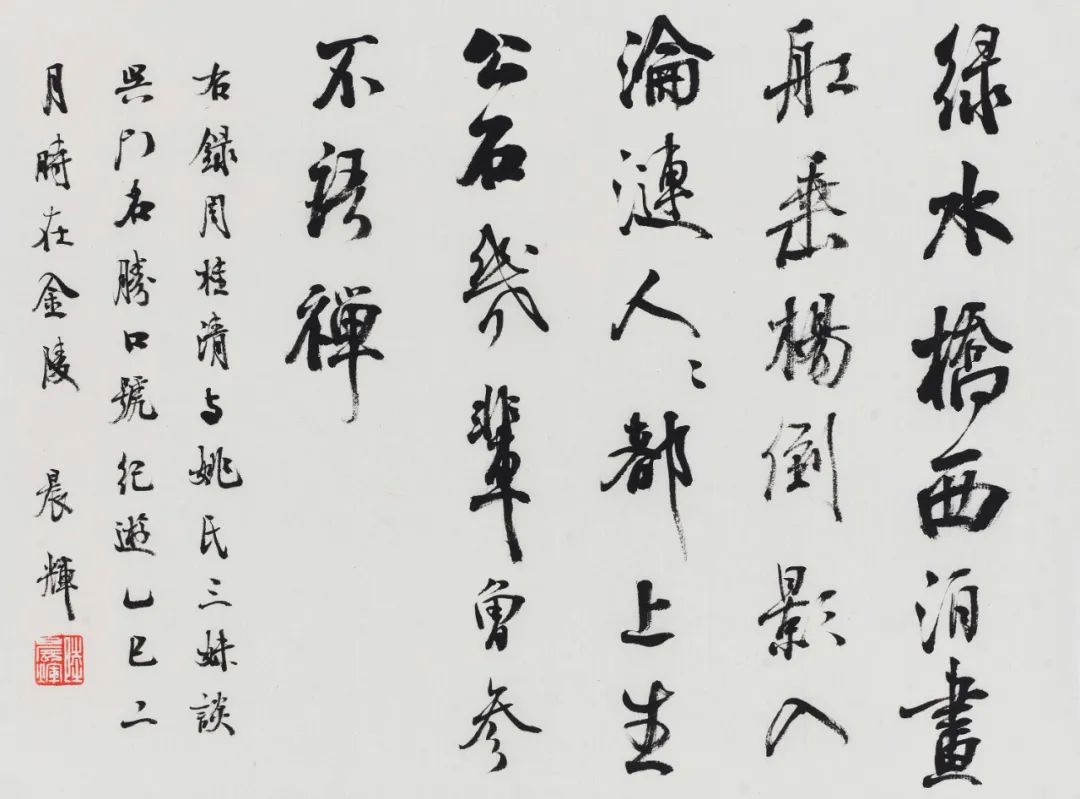 緑水橋西泊畫
舩垂楊倒影入
淪漣人〻都上生
公石幾輩曾參
不語禪
右録周桂清与姚氏三妹談
吳門名勝口號紀遊乙巳二
月時在金陵 晨輝